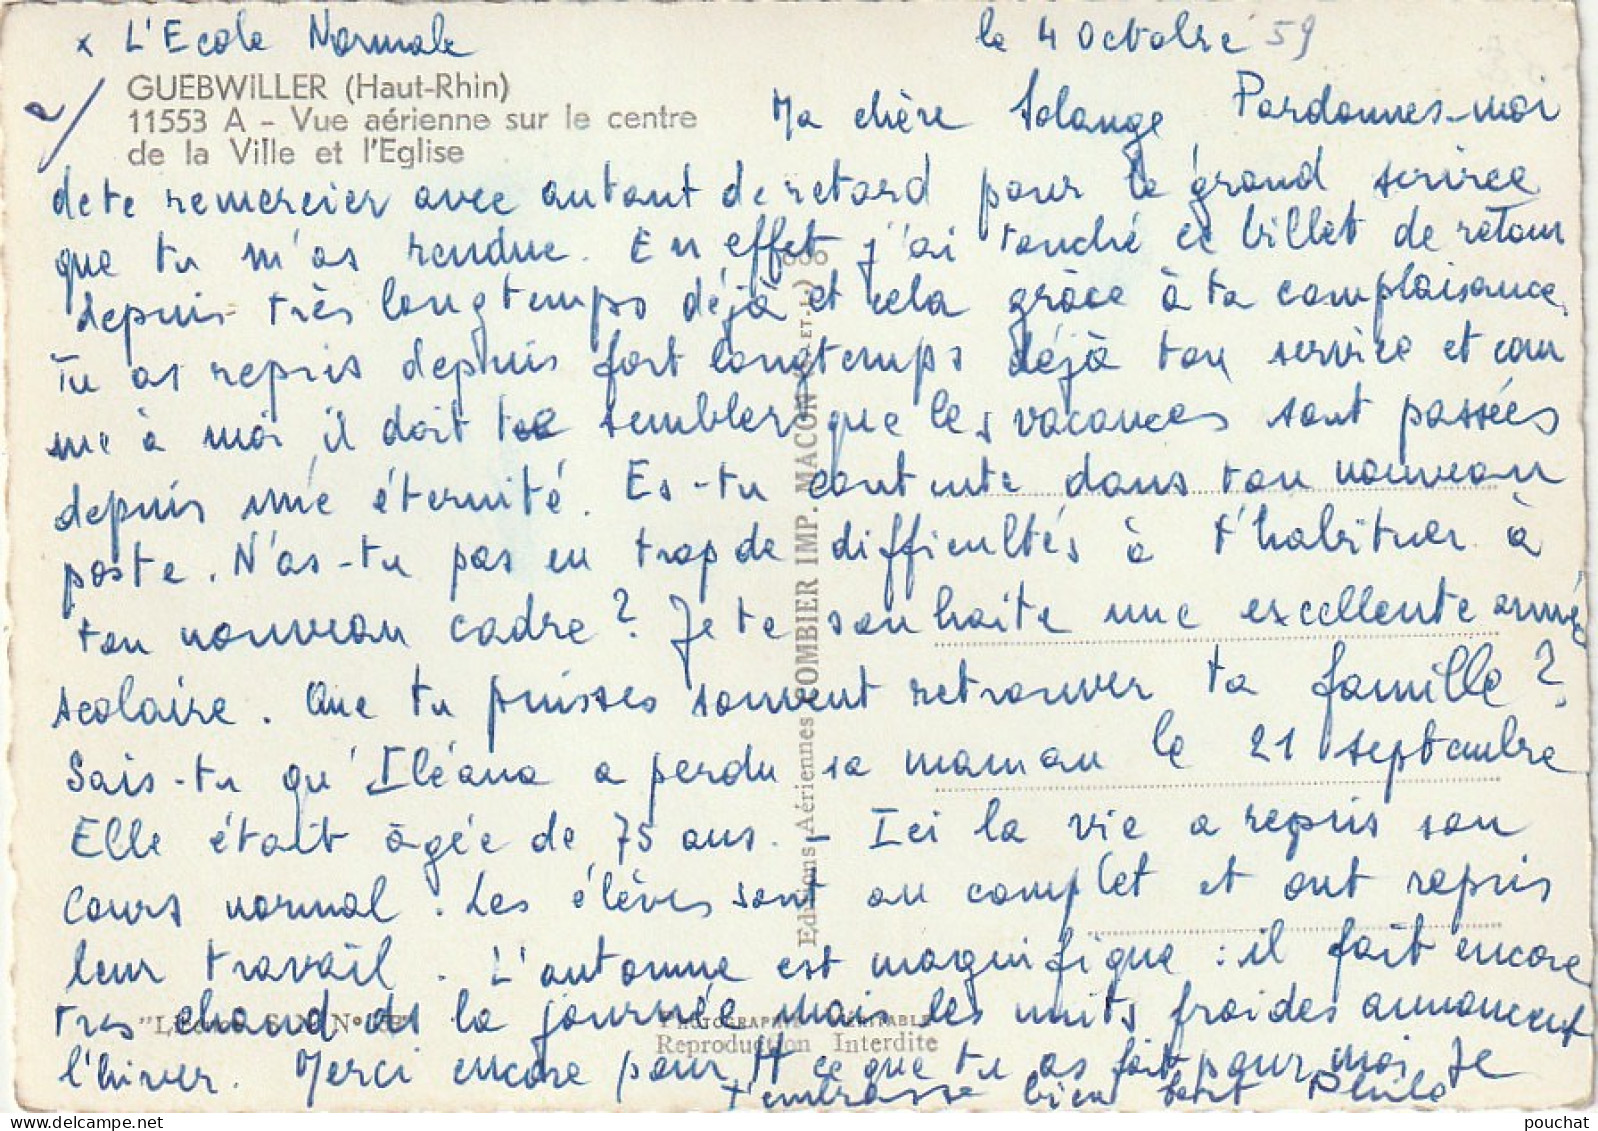 x L'Ecole Normale
le 4 Octobre 59
GUEBWILLER (Haut-Rhin)
11553 A - Vue aérienne sur le centre
de la Ville et l'Eglise
Ma chère Solange, Pardonnes-moi
de te remercier avec autant de retard pour le grand service
que tu m'as rendue. En effet j'ai touché ce billet de retour
depuis très longtemps déjà et cela grâce à ta complaisance.
Tu as repris depuis fort longtemps déjà ton service et com
me à moi il doit te sembler que les vacances sont passées
depuis une éternité. Es-tu contente dans ton nouveau
poste. N'as-tu pas eu trop de difficultés à t'habituer à
ton nouveau cadre ? Je te souhaite une excellente année
scolaire. Que tu puisses souvent retrouver ta famille ?
Sais-tu qu'Iléana a perdu sa maman le 21 septembre
Elle était âgée de 75 ans. - Ici la vie a repris son
cours normal. Les élèves sont au complet et ont repris
leur travail. L'automne est magnifique : il fait encore
tres chaud ds la journée mais les nuits froides annoncent
l'hiver. Merci encore pour tt ce que tu as fait pour moi. Je
t'embrasse bien fort
Editions Aériennes COMBIER IMP. MACON
PHOTOGRAPHIE VÉRITABLE
Reproduction Interdite
pouchat